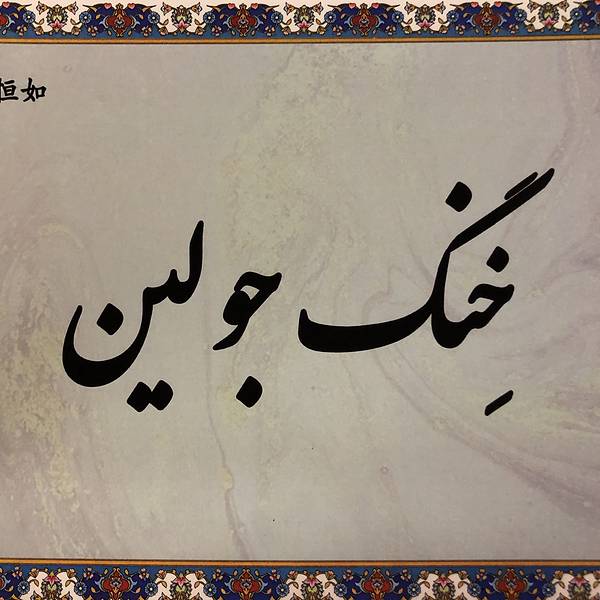 恒如
خِنگ جولین